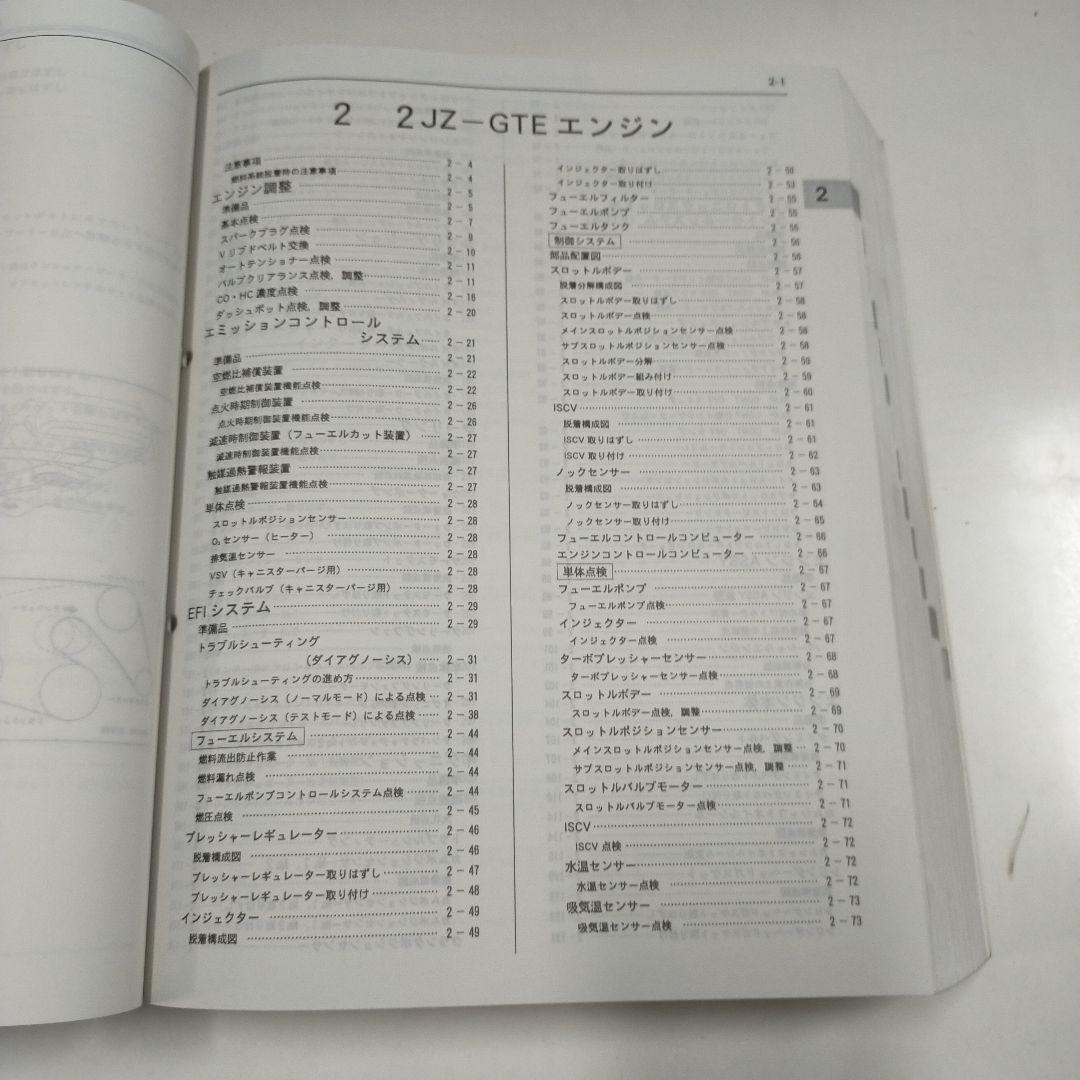 2-1
2 2JZ-GTE エンジン
注意事項 2-4
燃料系統脱着時の注意事項 2-4
エンジン調整 2-5
準備品 2-5
基本点検 2-7
スパークプラグ点検 2-9
Vリブドベルト交換 2-10
オートテンショナー点検 2-11
バルブクリアランス点検，調整 2-11
CO・HC濃度点検 2-16
ダッシュポット点検，調整 2-20
エミッションコントロール
システム 2-21
準備品 2-21
空燃比補償装置 2-22
空燃比補償装置機能点検 2-22
点火時期制御装置 2-26
点火時期制御装置機能点検 2-26
減速時制御装置（フューエルカット装置） 2-27
減速時制御装置機能点検 2-27
触媒過熱警報装置 2-27
触媒過熱警報装置機能点検 2-27
単体点検 2-28
スロットルポジションセンサー 2-28
O₂センサー（ヒーター） 2-28
排気温センサー 2-28
VSV（キャニスターパージ用） 2-28
チェックバルブ（キャニスターパージ用） 2-28
EFIシステム 2-29
準備品 2-29
トラブルシューティング
（ダイアグノーシス） 2-31
トラブルシューティングの進め方 2-31
ダイアグノーシス（ノーマルモード）による点検 2-31
ダイアグノーシス（テストモード）による点検 2-38
フューエルシステム 2-44
燃料流出防止作業 2-44
燃料漏れ点検 2-44
フューエルポンプコントロールシステム点検 2-44
燃圧点検 2-45
プレッシャーレギュレーター 2-46
脱着構成図 2-46
プレッシャーレギュレーター取りはずし 2-47
プレッシャーレギュレーター取り付け 2-48
インジェクター 2-49
脱着構成図 2-49
インジェクター取りはずし 2-50
インジェクター取り付け 2-53
フューエルフィルター 2-55
フューエルポンプ 2-55
フューエルタンク 2-55
制御システム 2-56
部品配置図 2-56
スロットルボデー 2-57
脱着分解構成図 2-57
スロットルボデー取りはずし 2-58
スロットルボデー点検 2-58
メインスロットルポジションセンサー点検 2-58
サブスロットルポジションセンサー点検 2-58
スロットルボデー分解 2-59
スロットルボデー組み付け 2-59
スロットルボデー取り付け 2-60
ISCV 2-61
脱着構成図 2-61
ISCV取りはずし 2-61
ISCV取り付け 2-62
ノックセンサー 2-63
脱着構成図 2-63
ノックセンサー取りはずし 2-64
ノックセンサー取り付け 2-65
フューエルコントロールコンピューター 2-66
エンジンコントロールコンピューター 2-66
単体点検 2-67
フューエルポンプ 2-67
フューエルポンプ点検 2-67
インジェクター 2-67
インジェクター点検 2-67
ターボプレッシャーセンサー 2-68
ターボプレッシャーセンサー点検 2-68
スロットルボデー 2-69
スロットルボデー点検，調整 2-69
スロットルポジションセンサー 2-70
メインスロットルポジションセンサー点検，調整 2-70
サブスロットルポジションセンサー点検，調整 2-71
スロットルバルブモーター 2-71
スロットルバルブモーター点検 2-71
ISCV 2-72
ISCV点検 2-72
水温センサー 2-72
水温センサー点検 2-72
吸気温センサー 2-73
吸気温センサー点検 2-73
2